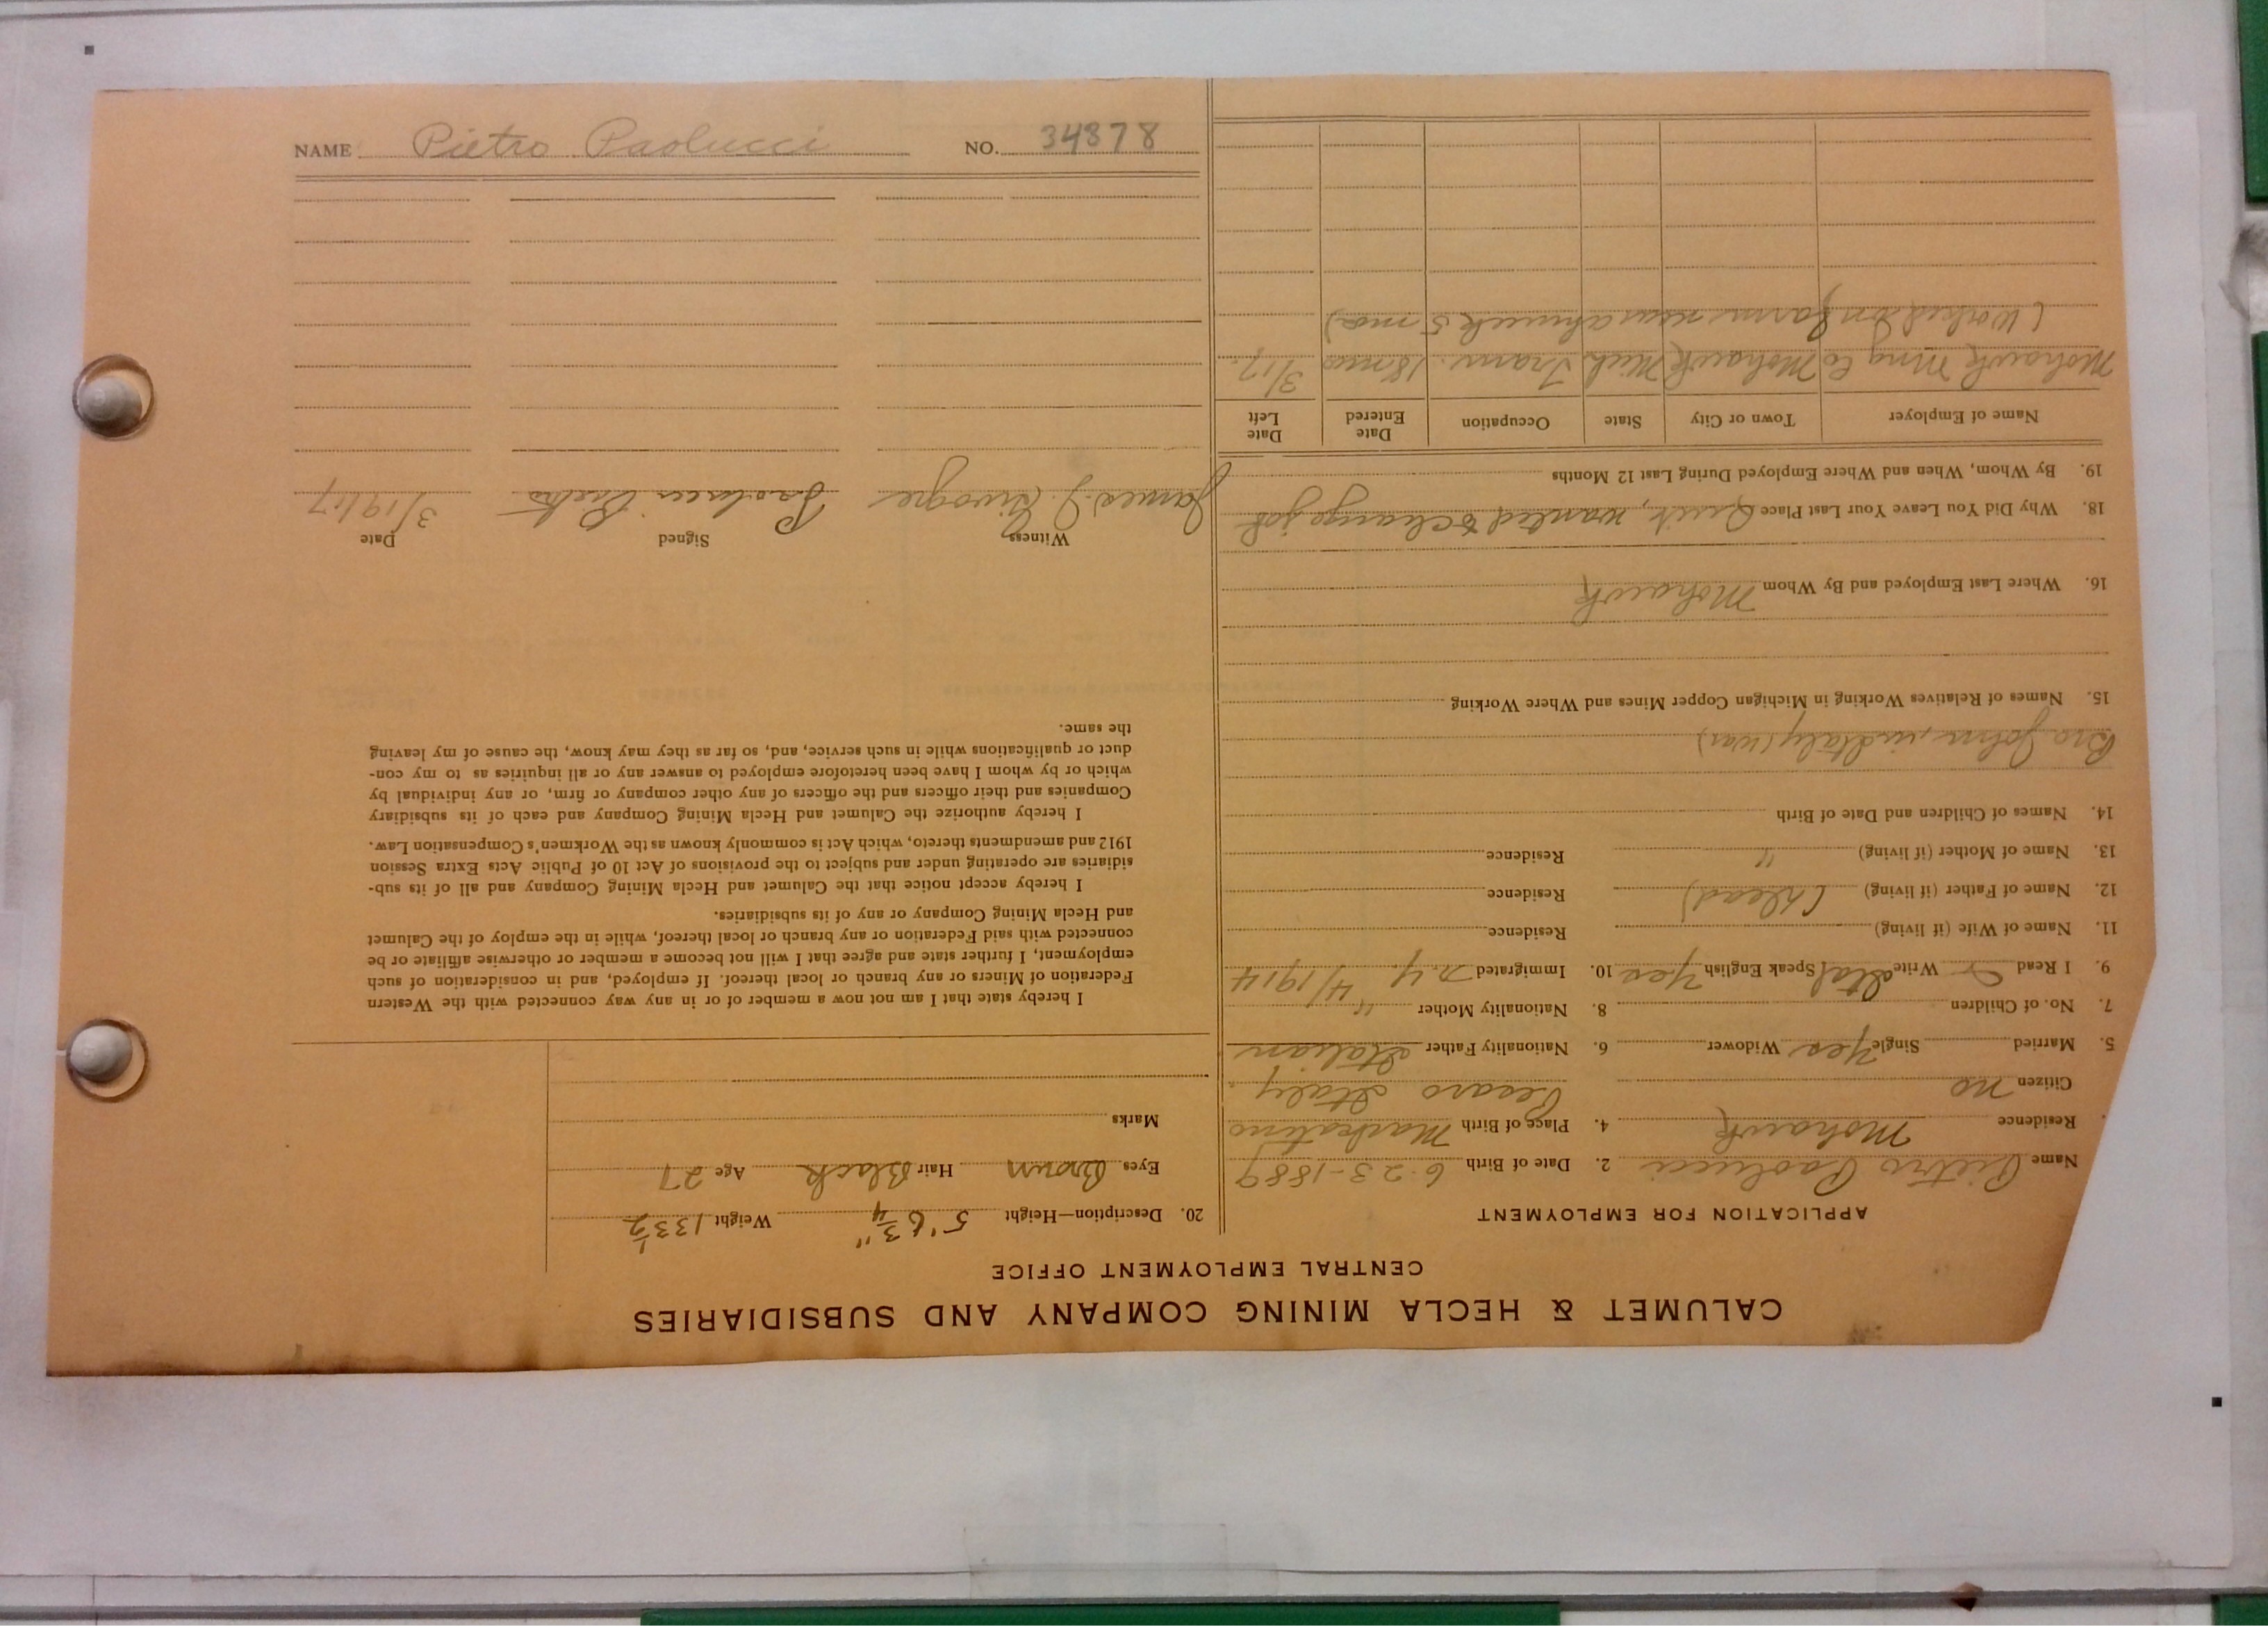 NAME Pietro Paolucci NO. 34878
CALUMET & HECLA MINING COMPANY AND SUBSIDIARIES
CENTRAL EMPLOYMENT OFFICE
APPLICATION FOR EMPLOYMENT
Name Pietro Paolucci 2. Date of Birth 6-23-1889
Residence Mohawk 4. Place of Birth
Citizen no Pesaro Italy
5. Married Single Yes Widower 6. Nationality Father Italian
7. No. of Children 8. Nationality Mother "
9. I Read Write Ital Speak English Yes 10. Immigrated N.Y. 4/1914
11. Name of Wife (if living) Residence
12. Name of Father (if living) (Dead) Residence
13. Name of Mother (if living) " Residence
14. Names of Children and Date of Birth
Bro John, in Italy (war)
15. Names of Relatives Working in Michigan Copper Mines and Where Working
16. Where Last Employed and By Whom Mohawk
18. Why Did You Leave Your Last Place Quit, wanted to change job
19. By Whom, When and Where Employed During Last 12 Months
Name of Employer Town or City State Occupation Date Entered Date Left
Mohawk Mng Co Mohawk Mich Tram. 18 mos 3/17.
(Worked on farm near 5 mos)
20. Description—Height 5' 6 3/4" Weight 133 1/2
Eyes Brown Hair Black Age 27
Marks
I hereby state that I am not now a member of or in any way connected with the Western
Federation of Miners or any branch or local thereof. If employed, and in consideration of such
employment, I further state and agree that I will not become a member or otherwise affiliate or be
connected with said Federation or any branch or local thereof, while in the employ of the Calumet
and Hecla Mining Company or any of its subsidiaries.
I hereby accept notice that the Calumet and Hecla Mining Company and all of its sub-
sidiaries are operating under and subject to the provisions of Act 10 of Public Acts Extra Session
1912 and amendments thereto, which Act is commonly known as the Workmen's Compensation Law.
I hereby authorize the Calumet and Hecla Mining Company and each of its subsidiary
Companies and their officers and the officers of any other company or firm, or any individual by
which or by whom I have been heretofore employed to answer any or all inquiries as to my con-
duct or qualifications while in such service, and, so far as they may know, the cause of my leaving
the same.
Witness Signed Date
James J. 3/19/17